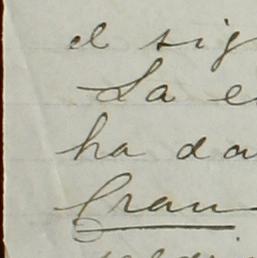 el sig
La e
ha da
Gran